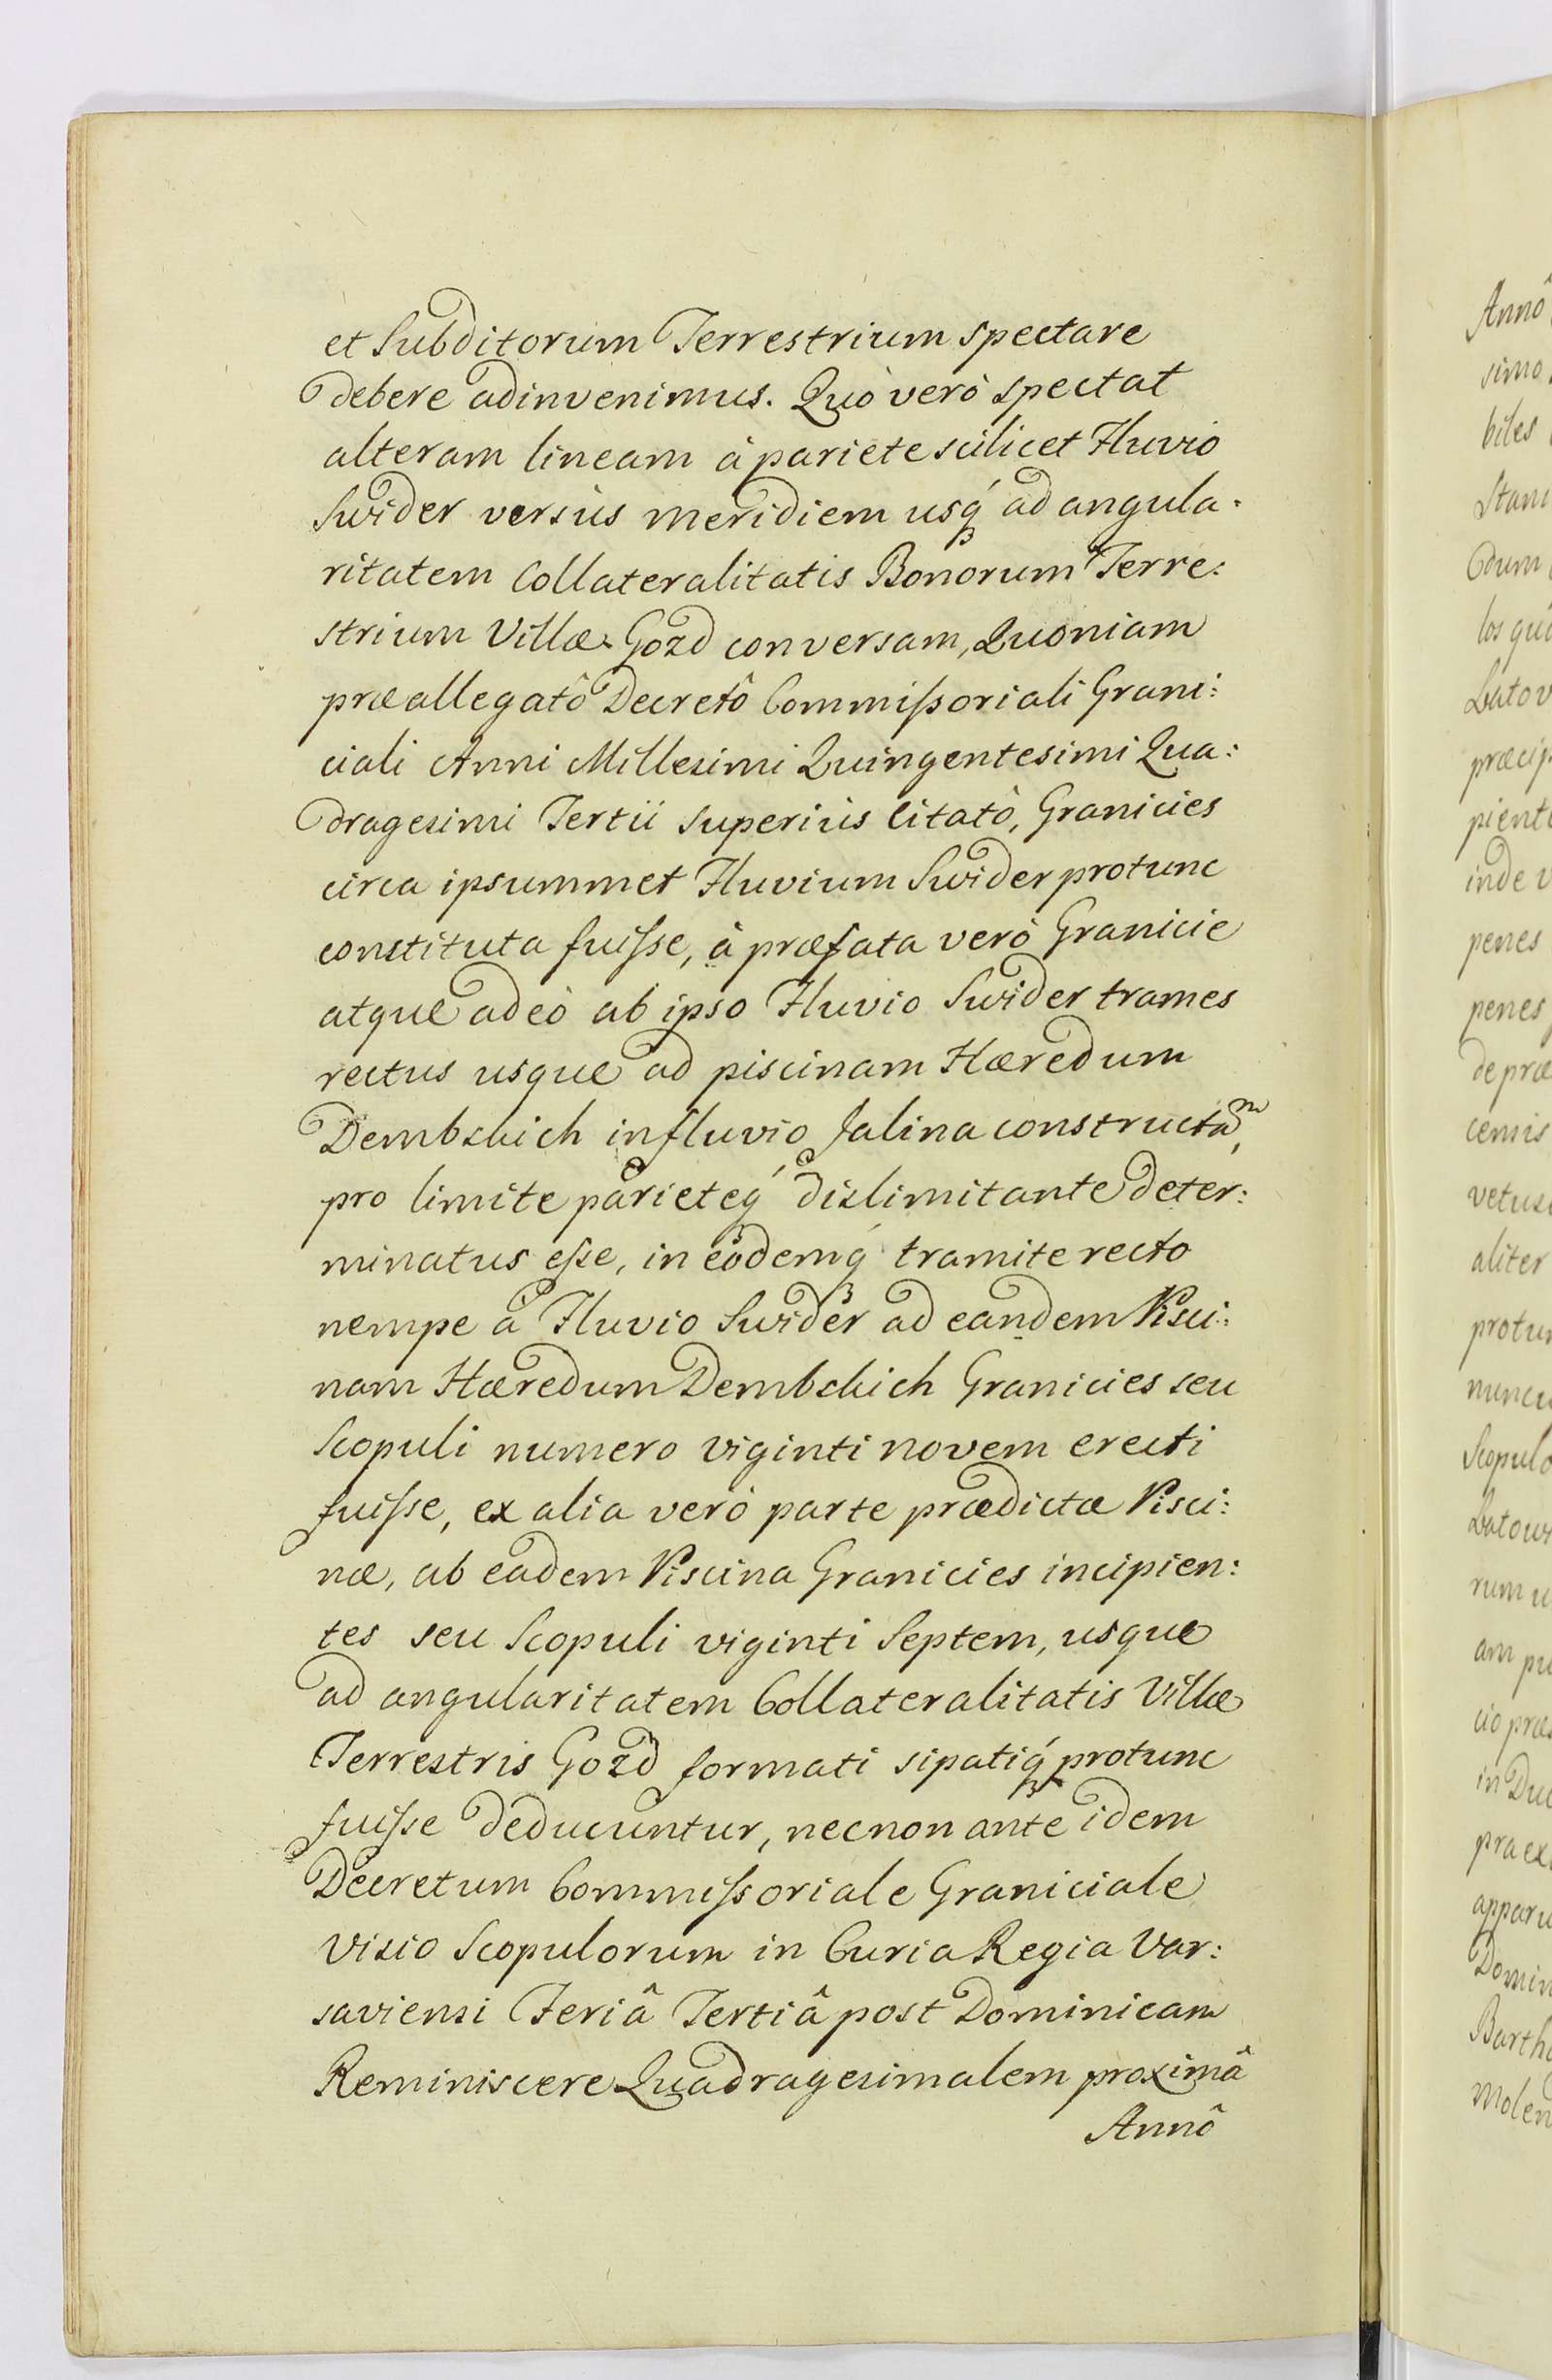 et Subditorum Terrestrium spectare
debere adinvenimus. Quò verò spectat
alteram lineam à pariete scilicet Fluvio
Swider versùs meridiem usq́ ad angula:
ritatem Collateralitatis Bonorum Terre:
strium Villæ Gozd conversam, Quoniam
præallegatô Decretô Commissoriali Grani:
ciali Anni Millesimi Quingentesimi Qua:
dragesimi Tertii superiùs citatô, Granicies
circa ipsummet Fluvium Swider protunc
constituta fuisse, à præfata verò Granicie
atque adeò ab ipso Fluvio Swider trames
rectus usque ad piscinam Hæredum
Dembskich in fluvio Jalina constructam,
pro limite parieteq́ dislimitante deter:
minatus esse, in eodemq́ tramite recto
nempe à Fluvio Swider ad eandem Pisci:
nam Hæredum Dembskich Granicies seu
Scopuli numero viginti novem erecti
fuisse, ex alia verò parte prædictæ Pisci:
næ, ab eadem Piscina Granicies incipien:
tes seu Scopuli viginti Septem, usque
ad angularitatem Collateralitatis Villæ
Terrestris Gozd formati sipatiq́ protunc
fuisse deducuntur, necnon ante idem
Decretum Commissoriale Graniciale
Visio Scopulorum in Curia Regia Var:
saviensi Feriâ Tertiâ post Dominicam
Reminiscere Quadragesimalem proximâ
Annô
Annô
simo
biles
Stani
dum
los
Latov
præcip
pient
inde
penes
penes
de præ
cenis
vetus
aliter
protun
nuncu
Scopulo
Latow
rum
am
cio præ
in Duc
pra
apparu
Domin
Barth
Molen